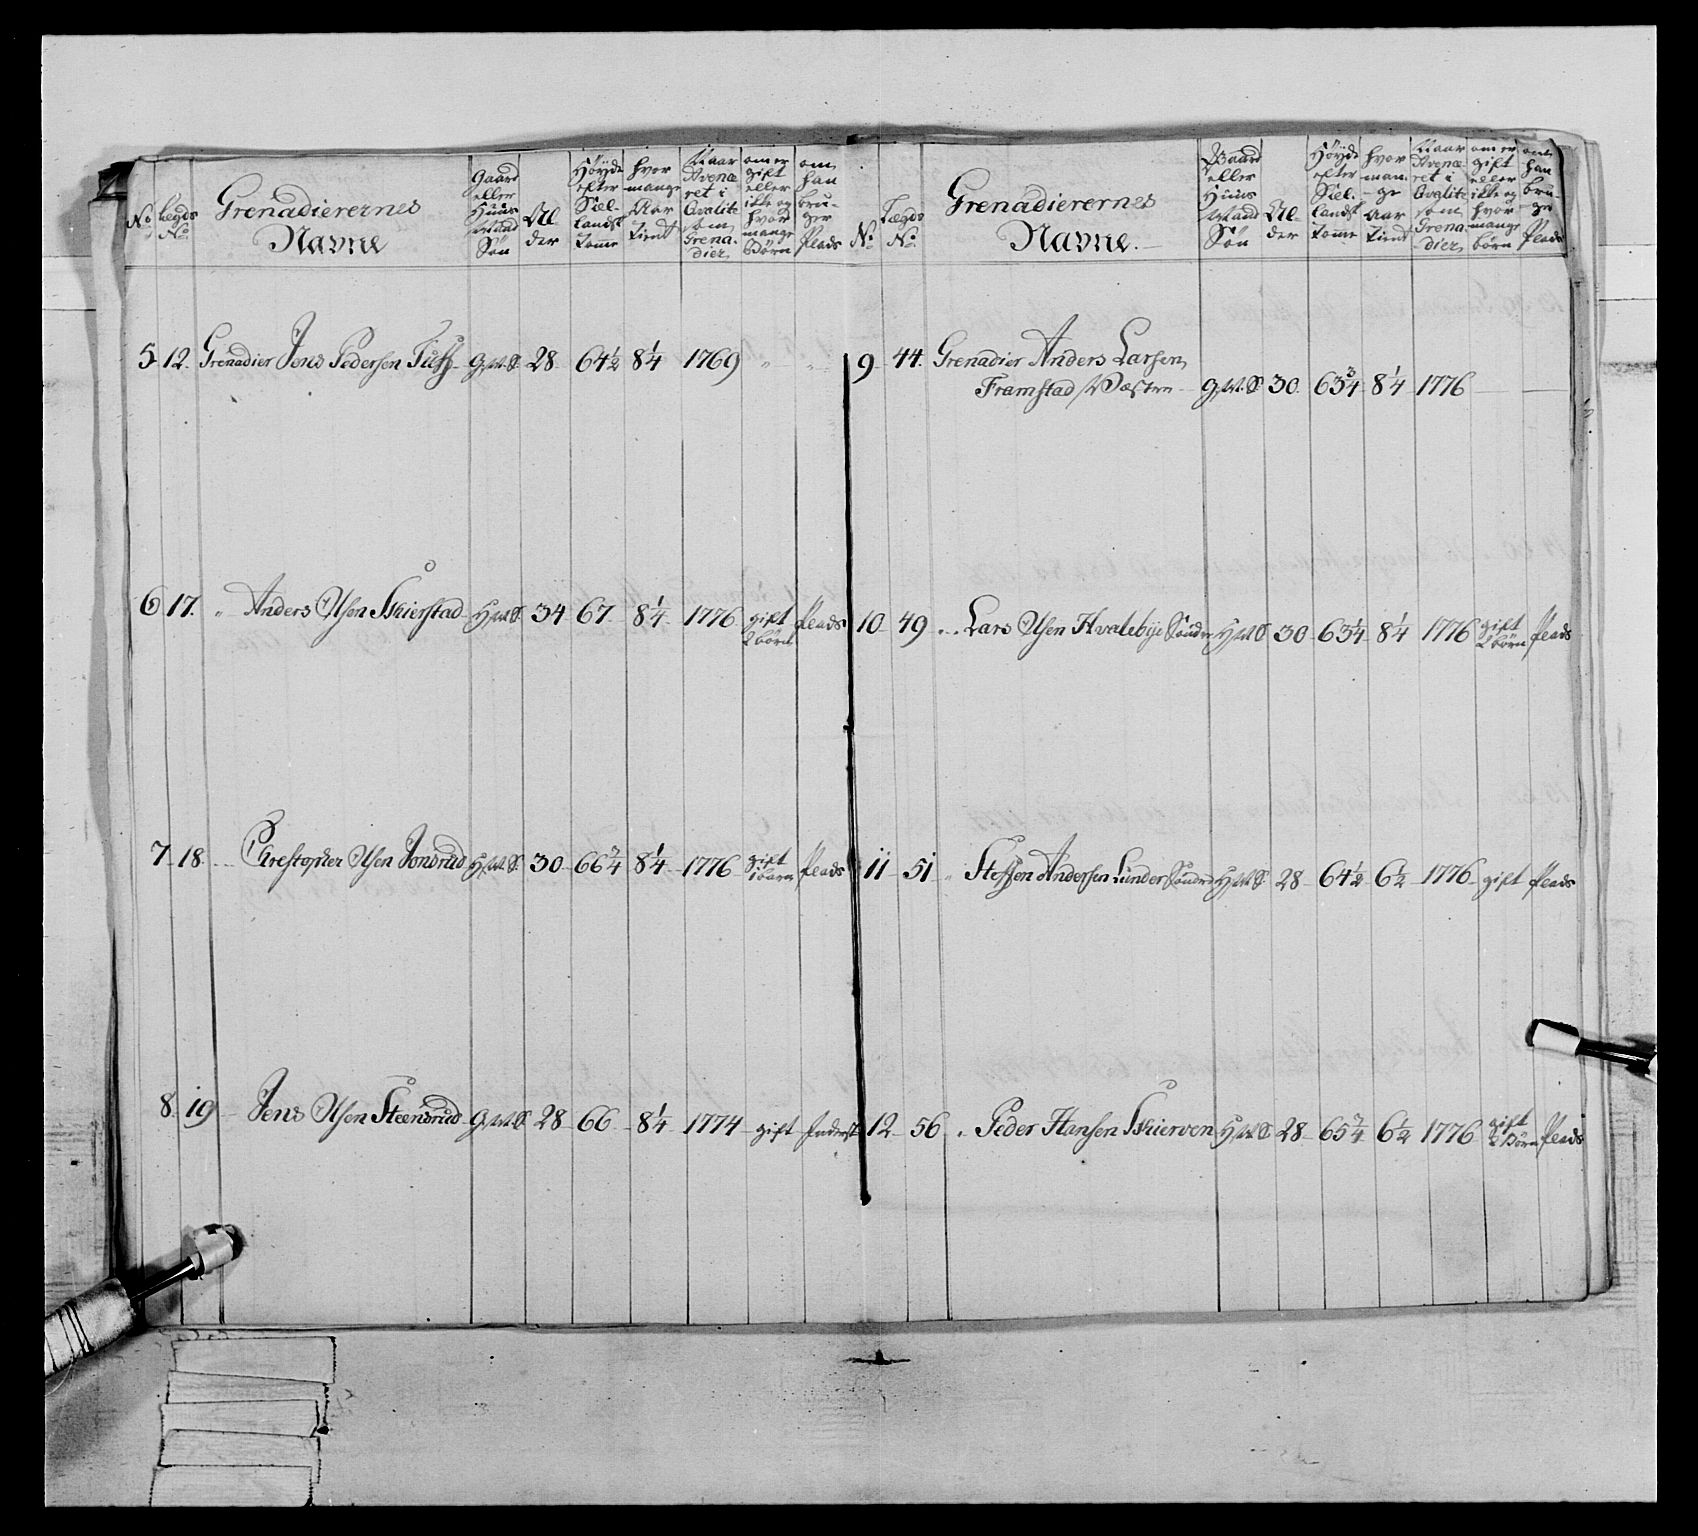 No
Legds No.
Grenadierernes Navne
Gaard eller Huus Mand Sön
Al der
Höyde efter Siel. landsk tomme
hvor mange Aar tient
Naar Avence ret i Qvalite som Grena. dier
om er gift eller ikke og hvor mange Börn
om han bru- ger Plads
5 12. Grenadier Jens Pedersen G.M.S. 28 64½ 8¼ 1769 " "
6 17. " Anders Olsen Skierstad H.M.S. 34 67 8¼ 1776 gift 2 börn Plads
7 18. Christopher Olsen Jonsrud H.M.S. 30 66¾ 8¼ 1776 gift 1 barn Plads
8. 19 Jens Olsen Steensrud G.M.S. 28 66 8¼ 1774 gift Inderst
No.
Lægds No.
Grenadierernes Navne.
Gaard eller Huus Mand Sön
Al der
Höyde efter Siel. landsk tomme
hvor man- ge Aar tient
Naar Avence ret i Qvalite som Grena dier
om er gift eller ikke og hvor mange börn
om han bru- ger Plads
9 44. Grenadier Anders Larsen
Framstad Væstre G.M.S. 30. 63¾ 8¼ 1776
10 49 " Lars Olsen Hvalebye Söndre H.M.S 30 63¼ 8¼ 1776 gift 2 börn Plads
11 51 " Steffen Andersen Lunder Söndre H.M.S 28 64½ 6½ 1776 gift Plads
12 56 " Peder Hansen Skierven H.M.S 28 65¾ 6½ 1776 gift 2 Börn Plads